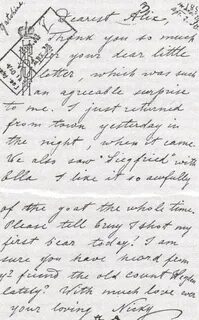 Dearest Alix,
Thank you so much
for your dear little
letter, which was such
an agreeable surprise
to me. I just returned
from town yesterday in
the night, when it came.
We also saw "Siegfried" with
Ella I like it so awfully
of the goat the whole time.
Please tell Erny I shot my
first bear today! I am
sure you have heard from
friend the old count
lately? With much love ever
your loving Nicky